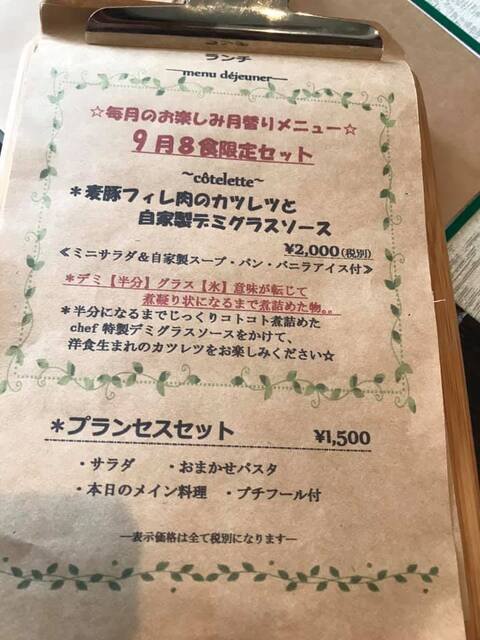 ランチ
menu déjeuner
☆毎月のお楽しみ月替りメニュー☆
9月8食限定セット
~côtelette~
*麦豚フィレ肉のカツレツと
自家製デミグラスソース
¥2,000(税別)
≪ミニサラダ&自家製スープ・パン・バニラアイス付≫
*デミ【半分】グラス【氷】意味が転じて
煮凝り状になるまで煮詰めた物。。
*半分になるまでじっくりコトコト煮詰めた
chef 特製デミグラスソースをかけて、
洋食生まれのカツレツをお楽しみください☆
*プランセスセット ¥1,500
・サラダ ・おまかせパスタ
・本日のメイン料理 ・プチフール付
―表示価格は全て税別になります―